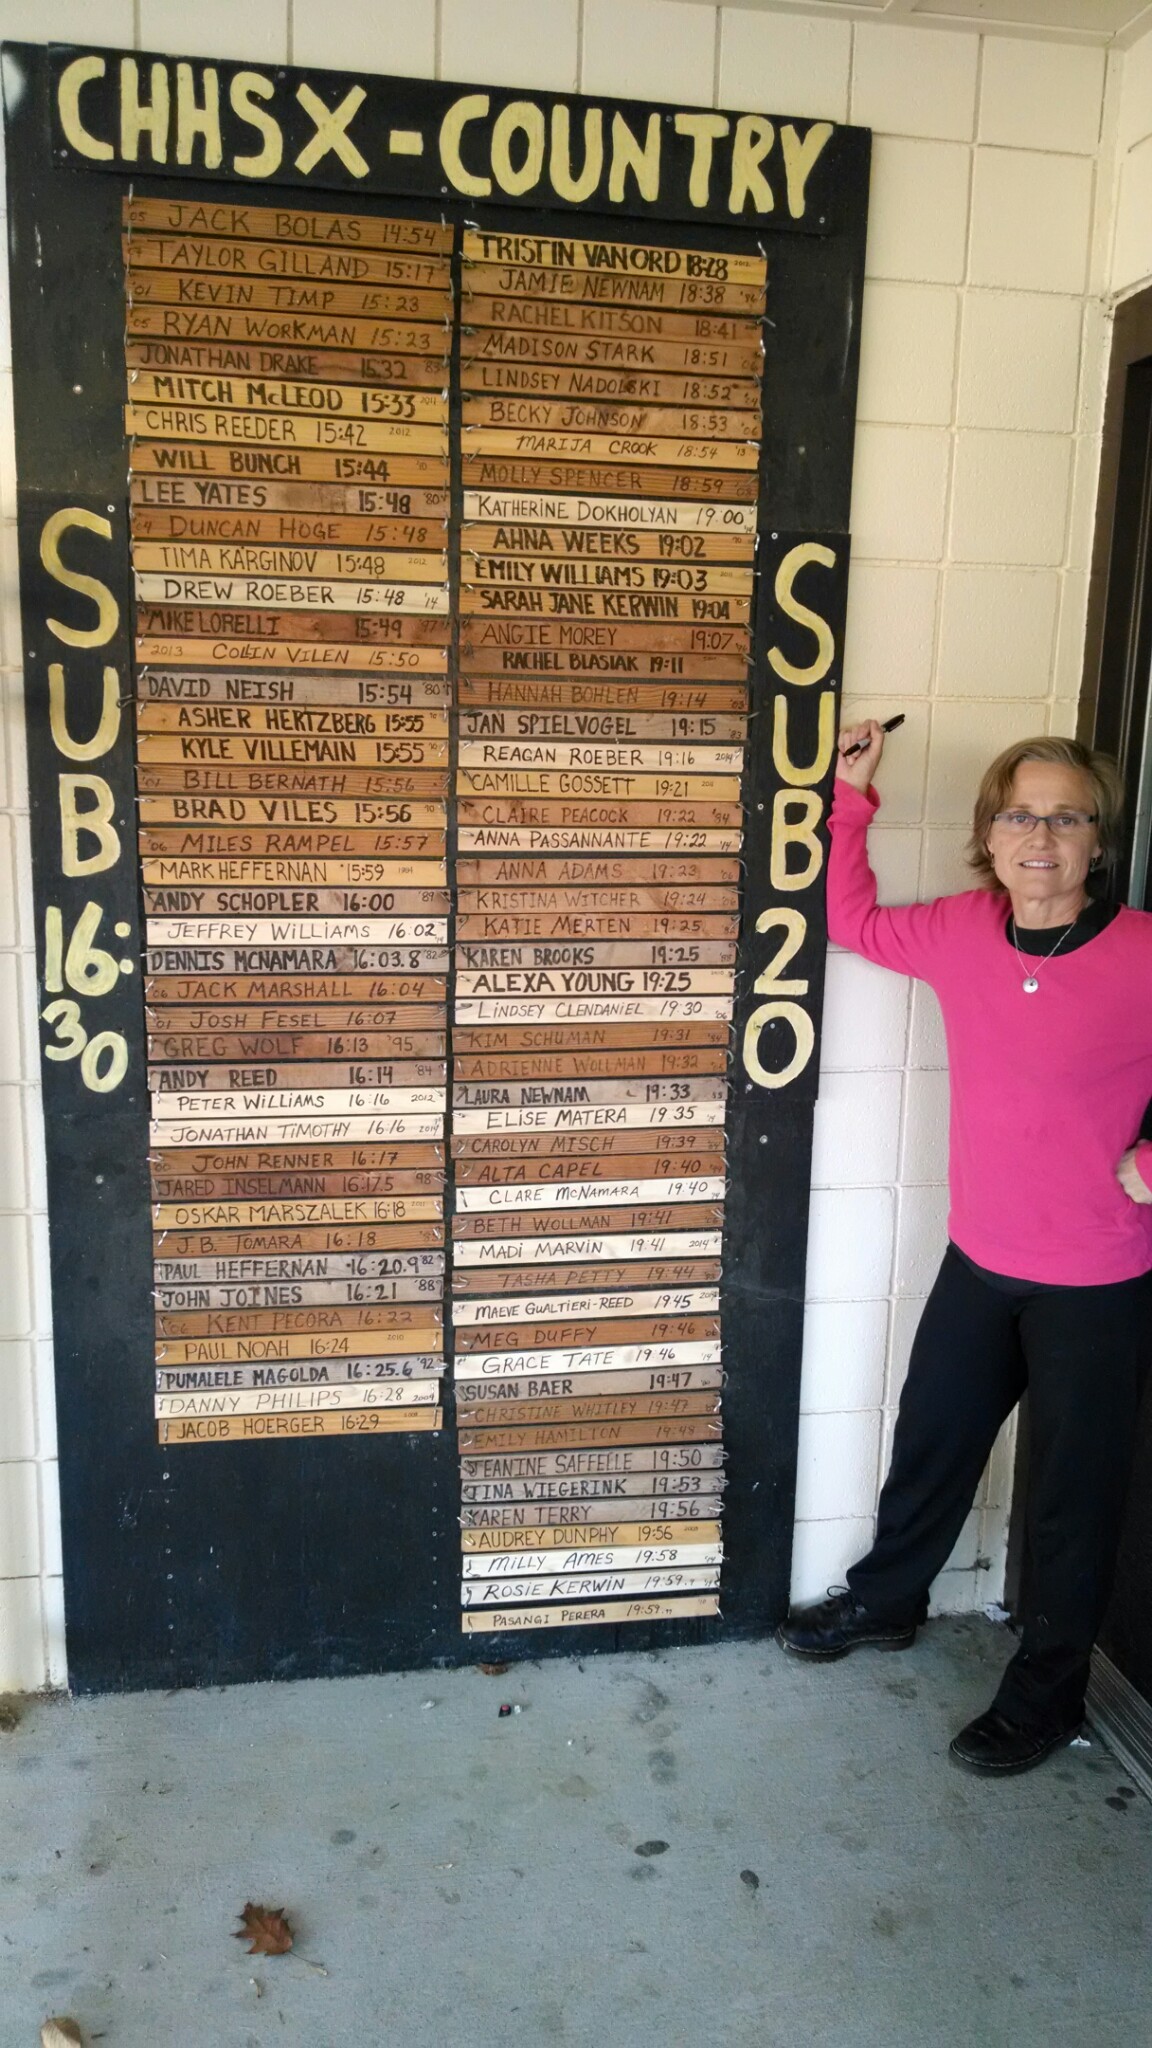 CHHS X-COUNTRY
SUB
16:30
'05 JACK BOLAS 14:54
TAYLOR GILLAND 15:17
'01 KEVIN TIMP 15:23
05 RYAN WORKMAN 15:23
JONATHAN DRAKE 15:32 83
MITCH McLEOD 15:33 2011
CHRIS REEDER 15:42 2012
WILL BUNCH 15:44 '10
LEE YATES 15:48 '80
'04 DUNCAN HOGE 15:48
TIMA KARGINOV 15:48 2012
DREW ROEBER 15:48 '14
MIKE LORELLI 15:49 '97
2013 COLLIN VILEN 15:50
DAVID NEISH 15:54 '80
ASHER HERTZBERG 15:55
KYLE VILLEMAIN 15:55
'01 BILL BERNATH 15:56
BRAD VILES 15:56 '10
'06 MILES RAMPEL 15:57
MARK HEFFERNAN 15:59
ANDY SCHOPLER 16:00 '89
JEFFREY WILLIAMS 16:02
DENNIS MCNAMARA 16:03.8 '82
'06 JACK MARSHALL 16:04
'01 JOSH FESEL 16:07
GREG WOLF 16:13 '95
ANDY REED 16:14 '84
PETER WILLIAMS 16:16 2012
JONATHAN TIMOTHY 16:16 2014
'00 JOHN RENNER 16:17
JARED INSELMANN 16:17.5 98
OSKAR MARSZALEK 16:18
J.B. TOMARA 16:18
PAUL HEFFERNAN 16:20.9 '82
JOHN JOINES 16:21 '88
'06 KENT PECORA 16:22
PAUL NOAH 16:24 2010
PUMALELE MAGOLDA 16:25.6 '92
DANNY PHILIPS 16:28 2009
JACOB HOERGER 16:29
TRISTIN VAN ORD 18:28 2012
JAMIE NEWNAM 18:38
RACHEL KITSON 18:41
MADISON STARK 18:51 '06
LINDSEY NADOLSKI 18:52 '04
BECKY JOHNSON 18:53 '06
MARIJA CROOK 18:54 '13
MOLLY SPENCER 18:59
KATHERINE DOKHOLYAN 19:00
AHNA WEEKS 19:02
EMILY WILLIAMS 19:03
SARAH JANE KERWIN 19:04
ANGIE MOREY 19:07
RACHEL BLASIAK 19:11
HANNAH BOHLEN 19:14
JAN SPIELVOGEL 19:15 '83
REAGAN ROEBER 19:16 2014
CAMILLE GOSSETT 19:21
CLAIRE PEACOCK 19:22 '84
ANNA PASSANNANTE 19:22 '14
ANNA ADAMS 19:23
KRISTINA WITCHER 19:24
KATIE MERTEN 19:25
KAREN BROOKS 19:25
ALEXA YOUNG 19:25
LINDSEY CLENDANIEL 19:30 '06
KIM SCHUMAN 19:31
ADRIENNE WOLLMAN 19:32
LAURA NEWNAM 19:33
ELISE MATERA 19 35
CAROLYN MISCH 19:39
ALTA CAPEL 19:40
CLARE McNAMARA 19:40
BETH WOLLMAN 19:41
MADI MARVIN 19:41 2014
TASHA PETTY 19:44
MAEVE GUALTIERI-REED 19 45
MEG DUFFY 19:46 '06
GRACE TATE 19 46 '14
SUSAN BAER 19:47
CHRISTINE WHITLEY 19:47
EMILY HAMILTON 19:48
JEANINE SAFFELLE 19:50
TINA WIEGERINK 19:53
KAREN TERRY 19:56
AUDREY DUNPHY 19:56
MILLY AMES 19:58 '14
ROSIE KERWIN 19:59
PASANGI PERERA 19:59
SUB
20